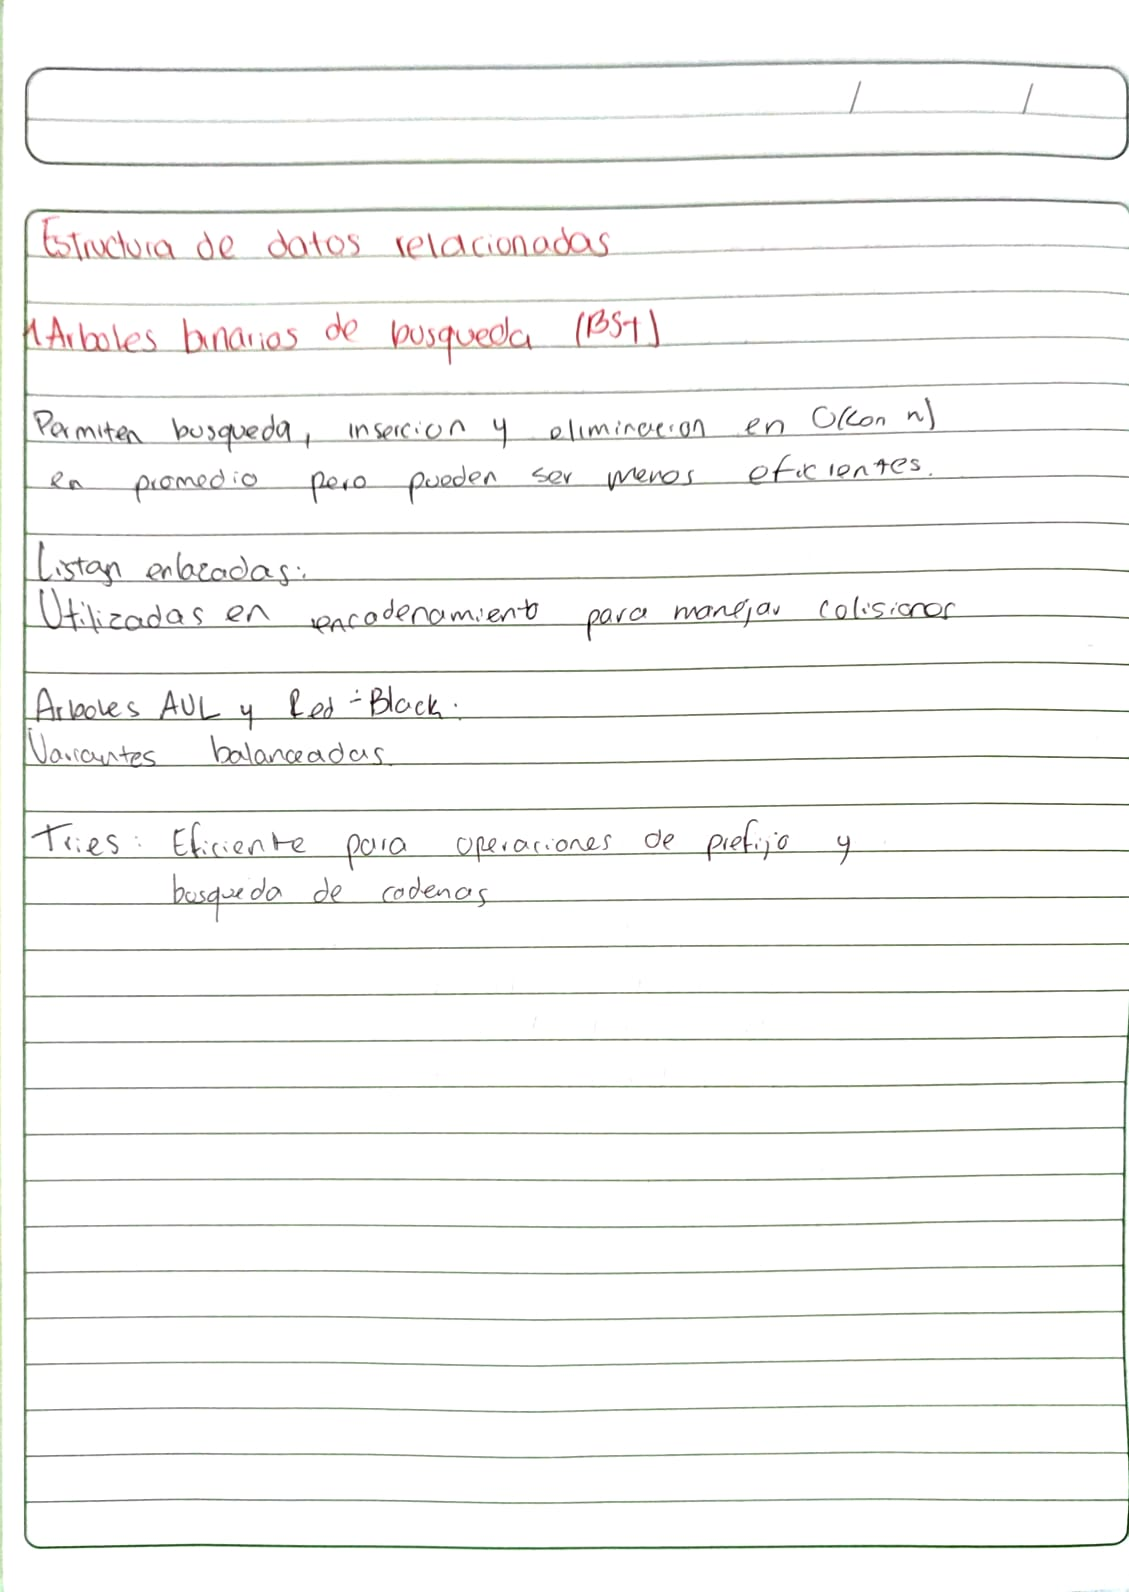 Estructura de datos relacionadas
1 Arboles binarios de busqueda (BST)
Permiten busqueda, insercion y eliminacion en O(Con n)
en promedio pero pueden ser menos eficientes.
Listan enlazadas:
Utilizadas en encadenamiento para manejar colisiones
Arboles AUL y Red-Black:
Variantes balanceadas
Tries: Eficiente para operaciones de prefijo y
busqueda de cadenas